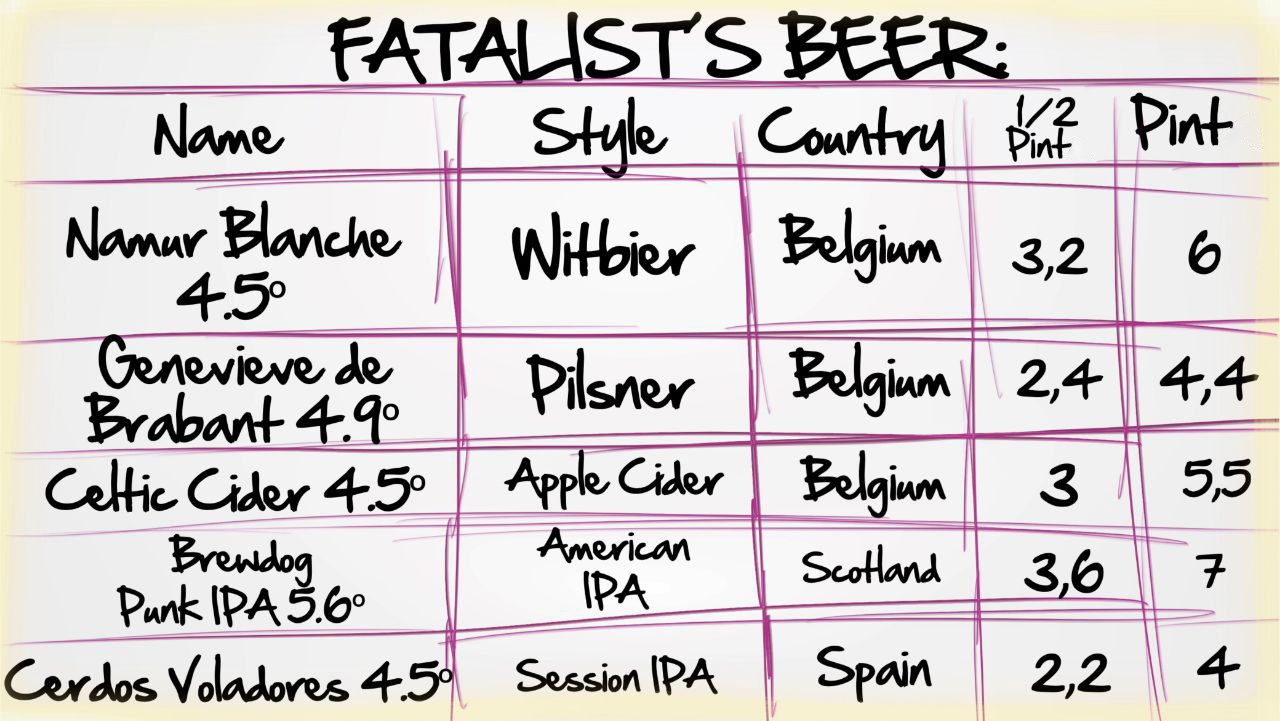 FATALIST'S BEER:
Name Style Country 1/2 Pint Pint
Namur Blanche 4.5º Witbier Belgium 3,2 6
Genevieve de Brabant 4.9º Pilsner Belgium 2,4 4,4
Celtic Cider 4.5º Apple Cider Belgium 3 5,5
Brewdog Punk IPA 5.6º American IPA Scotland 3,6 7
Cerdos Voladores 4.5º Session IPA Spain 2,2 4